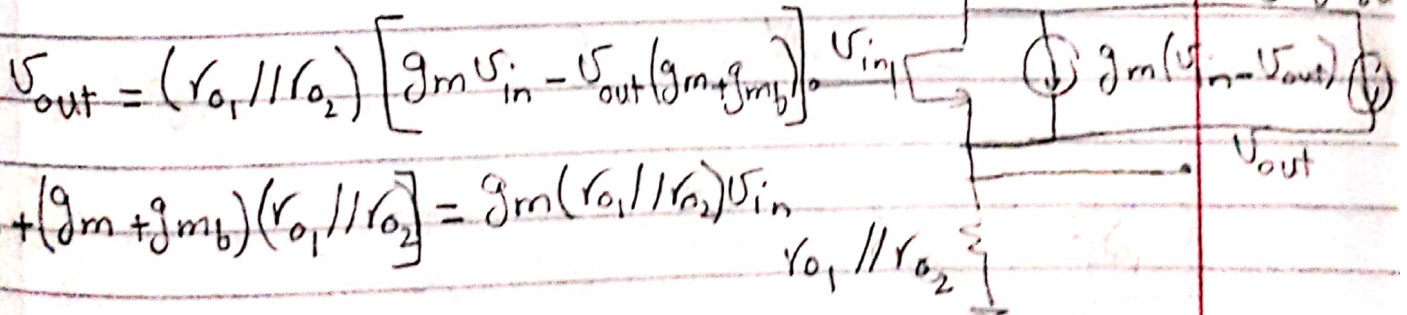 υout = (ro1//ro2) [gmυin - υout(gm+gmb)].
υin
gm(υin-υout)
υout
+(gm+gmb)(ro1//ro2] = gm(ro1//ro2)υin
ro1//ro2